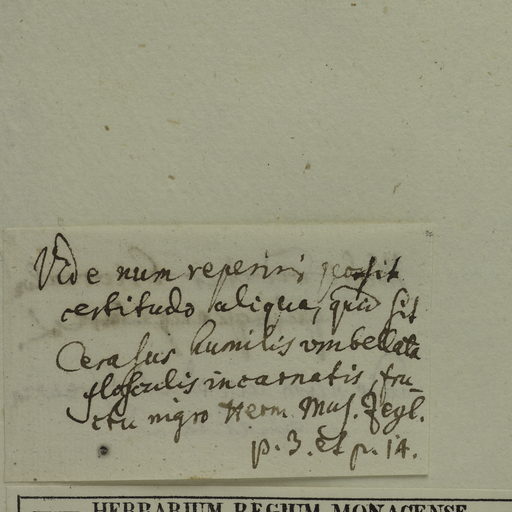 Vide num reperiri possit
certitudo aliqua, quid sit
Cerasus humilis umbellata
flosculis incarnatis, fru-
ctu nigro Herm. Mus. Zeyl.
p. 3. et p. 14.
HERBARIUM REGIUM MONACENSE